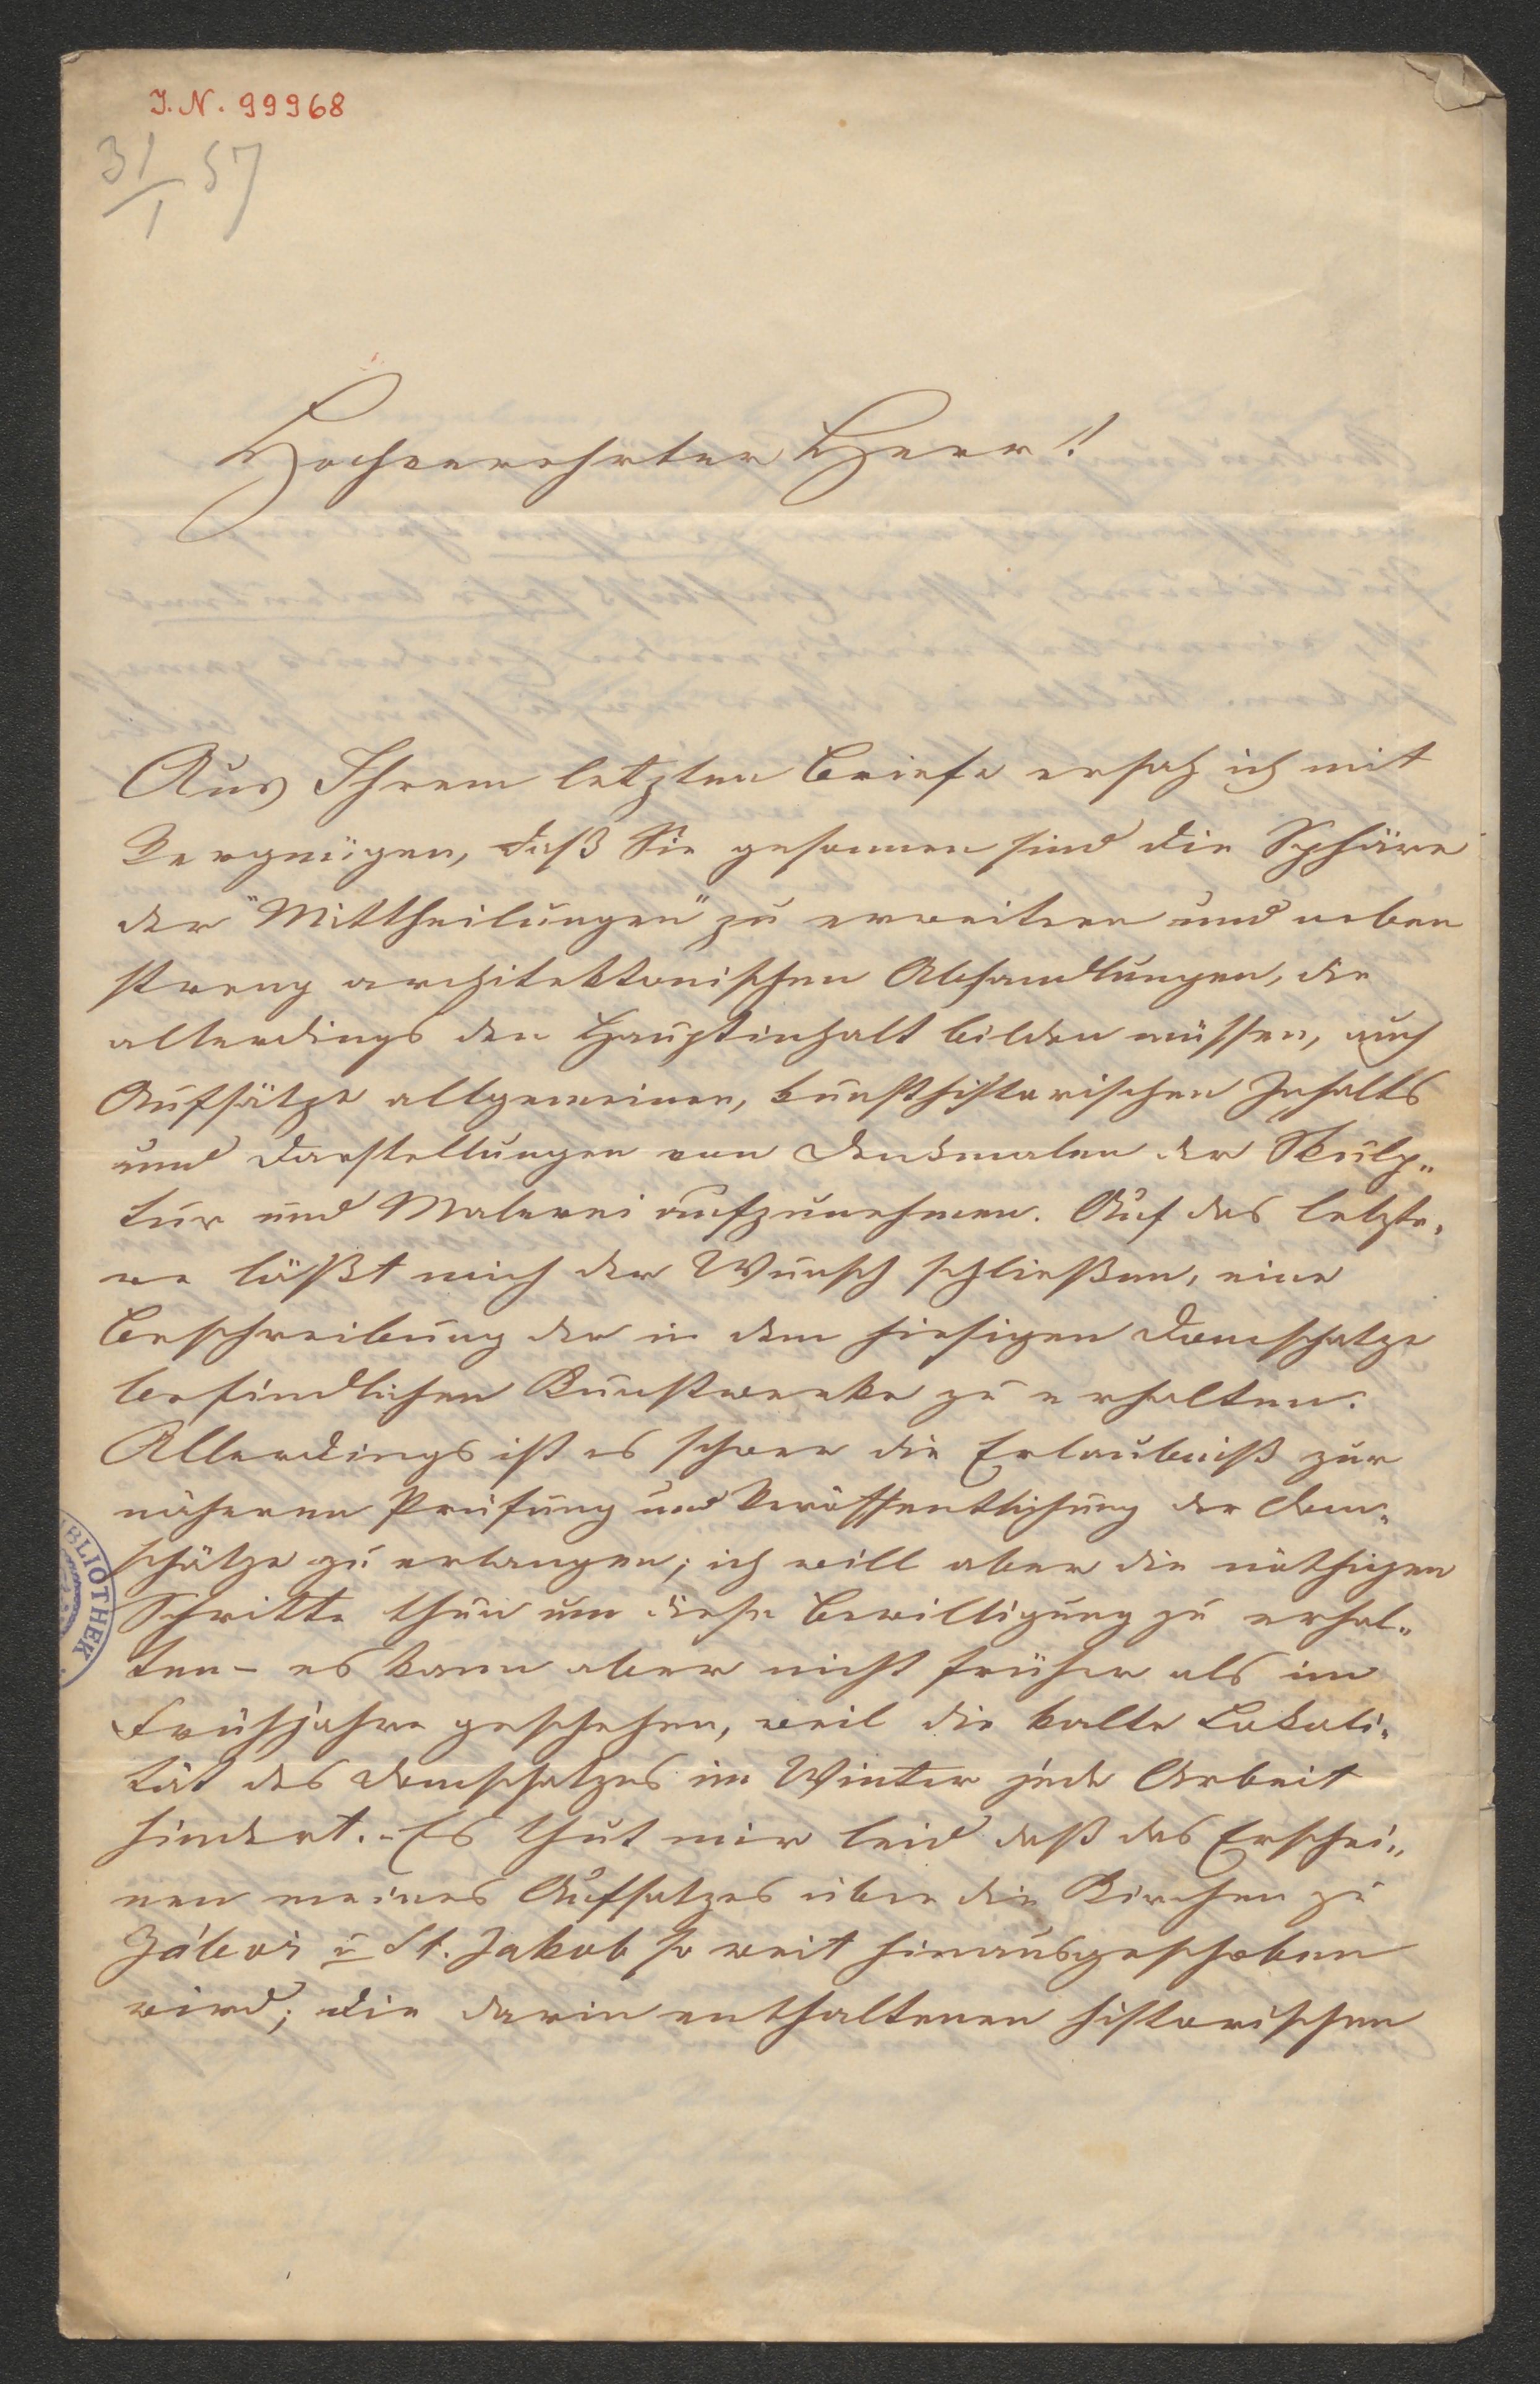 J. N. 99968
31/1 57
Hochverehrter Herr!
Aus Ihrem letzten Briefe ersah ich mit
Vergnügen, daß Sie gesonnen sind die Sphäre
der "Mittheilungen" zu erweitern und neben
streng architektonischen Abhandlungen, die
allerdings den Hauptinhalt bilden müssen, auch
Aufsätze allgemeinen, kunsthistorischen Inhalts
und Darstellungen von Denkmalen der Skulp„
tur und Malerei aufzunehmen. Auf das letzte„
re läßt mich der Wunsch schließen, eine
Beschreibung der in dem hiesigen Domschatze
befindlichen Kunstwerke zu erhalten.
Allerdings ist es schwer die Erlaubniß zur
näheren Prüfung und Veröffentlichung der Dom„
schätze zu erlangen; ich will aber die nöthigen
Schritte thun um diese Bewilligung zu erhal„
ten – es kann aber nicht früher als im
Frühjahre geschehen, weil die kalte Lokali„
tät des Domschatzes im Winter jede Arbeit
hindert. – Es thut mir leid daß das Erschei„
nen meines Aufsatzes über die Kirchen zu
Záboř u St. Jakob so weit hinausgeschoben
wird; die darin enthaltenen historischen
BLIOTHEK